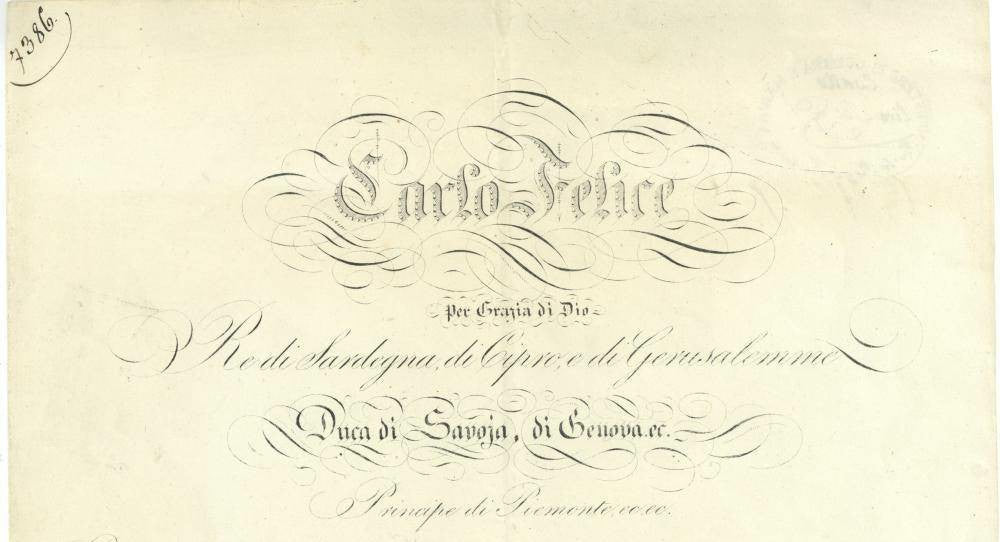 7386.
Carlo Felice
per Grazia di Dio
Re di Sardegna, di Cipro, e di Gerusalemme
Duca di Savoja, di Genova. ec.
Principe di Piemonte, ec. ec.